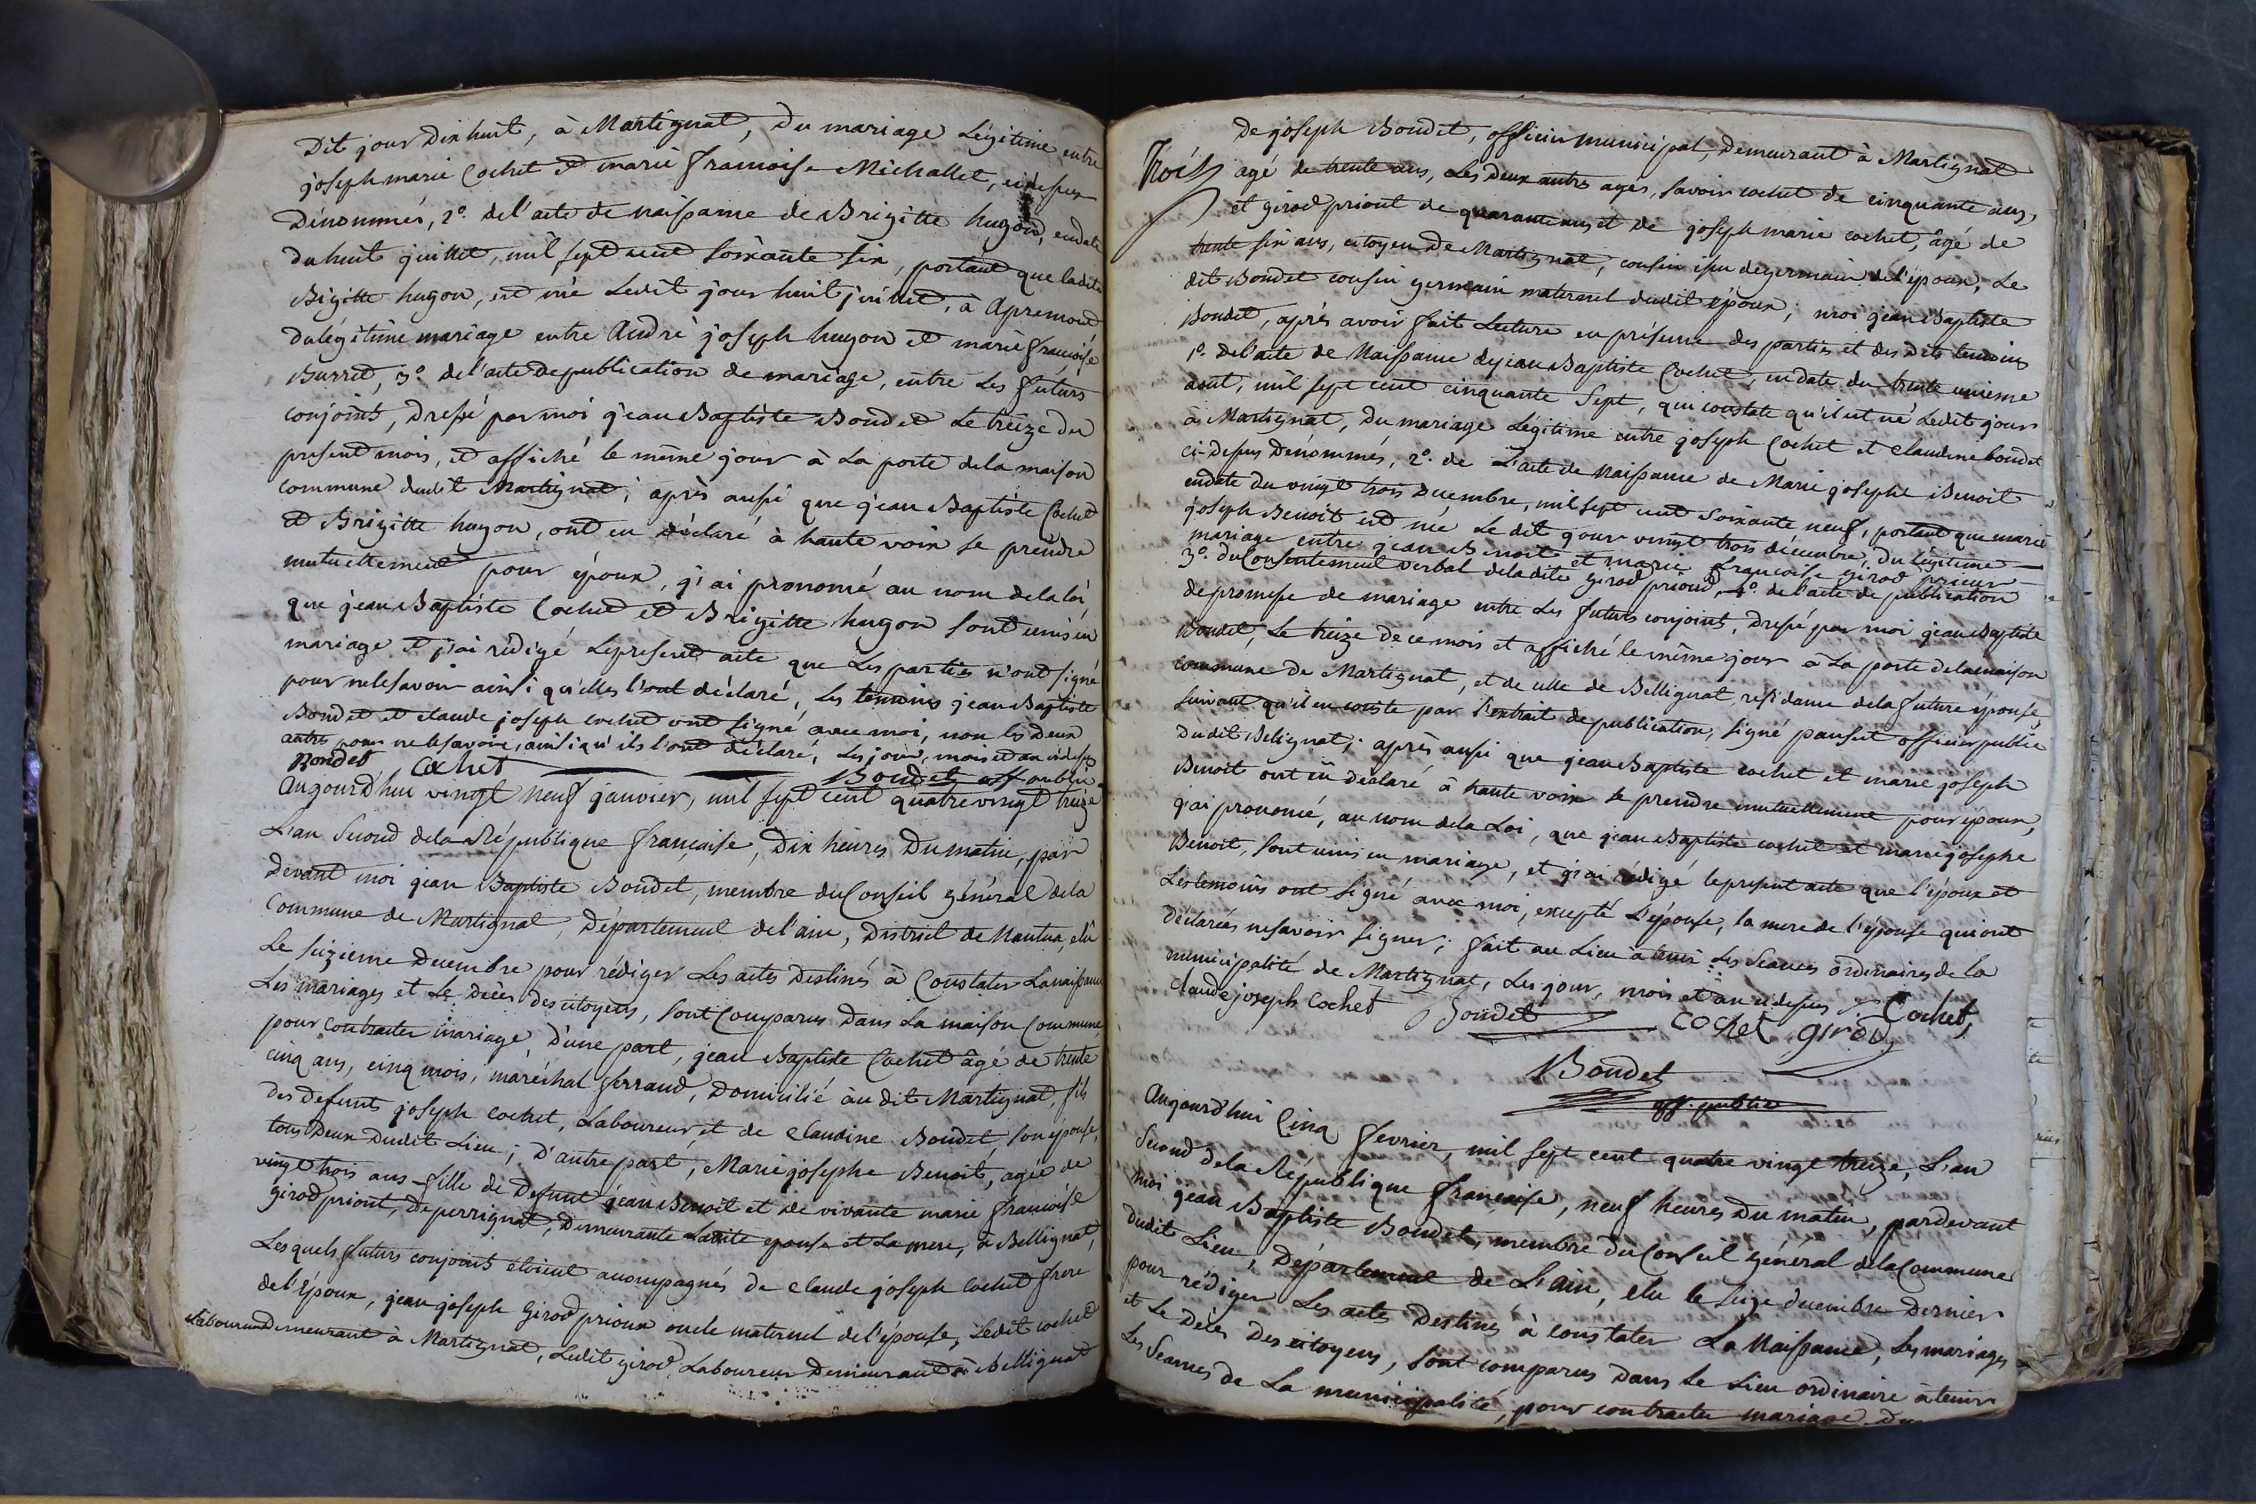 Dit jour Dix huit, à Martignat, Du mariage Légitime entre
joseph marie Cochet et marie francoise Michallet, cidessus
Dénommés, 2º. de l'acte de naissance de Brigitte hugon, en date
du huit juillet, mil sept cent soixante six, portant que ladite
Bigitte hugon, est née Ledit jour huit juillet, à Apremont
du légitime mariage entre André joseph hugon et marie françoise
Burret, 3º. de l'acte de publication de mariage, entre Les futurs
conjoints, Dressé par moi jean Baptiste Boudet Le treize du
present mois, et affiché le même jour à La porte de la maison
commune dudit Martignat; après aussi que jean Baptiste Cochet
et Brigitte hugon, ont eu déclaré à haute voix se prendre
mutuellement pour époux, j'ai prononcé au nom de la loi
que jean Baptiste Cochet et Brigitte hugon sont unis en
mariage et j'ai rédigé Le present acte que Les parties n'ont signé
pour ne le savoir ainsi qu'elles l'ont déclaré, Les temoins jean Baptiste
Boudet et claude joseph cochet ont signé avec moi, non les deux
autres pour ne le savoir, ainsi qu'ils l'ont déclaré, Les jour, mois et an cidessus
Boudet Cochet Boudet off. public
Aujourd'hui vingt neuf janvier, mil sept cent quatre vingt treize
L'an Second de la République française, Dix heures Du matin, par
devant moi jean Baptiste Boudet, membre du Conseil général de la
Commune de Martignat, Département de l'ain, District de Nantua, elû
Le seizieme Decembre pour rédiger Les actes Destinés à Constater La naissance
Les mariages et Le Décès des citoyens, sont Comparus Dans La maison Commune
pour contracter mariage D'une part, jean Baptiste Cochet âgé de trente
cinq ans, cinq mois, maréchal ferrand, Domicilié au dit Martignat, fils
des Defunts joseph cochet, Laboureur, et de claudine Boudet son épouse,
tous Deux Dudit Lieu; D'autre part, Marie josephe Benoit, agée de
vingt trois ans fille de Defunt jean Benoit et de vivante marie françoise
girod priout, de perrignat, Demeurante Ladite epouse et La mere, à Bellignat,
Lesquels futurs conjoints etoient accompagnés de claude joseph Cochet frere
de l'Epoux, jean joseph Girod prioux oncle maternel de l'épouse, Ledit cochet
Laboureur Demeurant à Martignat, Ledit girod Laboureur Demeurant à Bellignat
De joseph Boudet, officier municipal, Demeurant à Martignat
Trois agé de trente ans, Les Deux autres agés, savoir cochet de cinquante ans,
et girod priout de quarante ans, et de joseph marie cochet, âgé de
trente six ans, citoyen De Martignat, cousin issu de germain de l'époux, Le
dit Boudet cousin germain maternel dudit époux; moi jean Baptiste
Boudet, après avoir fait Lecture en presence des parties et des dits temoins
1º. de l'acte de Naissance de jean Baptiste Cochet, en date du trente unieme
aout, mil sept cent cinquante Sept, qui constate qu'il est né Ledit jour
à Martignat, Du mariage Légitime entre joseph Cochet et claudine boudet
ci-Dessus Dénommés, 2º. de L'acte de Naissance de Marie josephe Benoit
en date du vingt trois Decembre, mil sept cent soixante neuf, portant que marie
joseph Benoit est née Le dit jour vingt trois décembre, Du légitime
mariage entre jean Benoit et marie francoise girod prieur
3º. du Consentement verbal de ladite girod prioud, 4º. de l'acte de publication
de promesse de mariage entre Les futurs conjoints, Dressé par moi jean Baptiste
Boudet, Le treize de ce mois et affiché le même jour à La porte de la maison
commune De Martignat, et de celle de Bellignat residance de la future épouse
suivant qu'il en conste par l'extrait de publication, signé officier public
Dudit Bellignat; après aussi que jean Baptiste cochet et marie joseph
Benoit ont eû declaré à haute voix se prendre mutuellement pour époux,
j'ai prononcé, au nom de la Loi, que jean Baptiste cochet et marie josephe
Benoit, sont unis en mariage, et j'ai rédigé le present acte que l'époux et
Les temoins ont signé avec moi, excepté L'épouse, la mere de l'épouse qui ont
déclarées ne savoir signer; fait au Lieu à tenir Les Seances ordinaires de la
municipalité de Martignat, Les jour, mois et an cidessus Cochet,
Claude joseph Cochet Boudet cochet girod
Boudet
off. public
Aujourd'hui Cinq fevrier, mil sept cent quatre vingt treize, L'an
Second de la République française, neuf heures Du matin, pardevant
moi jean Baptiste Boudet, membre du Conseil général de la Commune
dudit Lieu, Département de L'ain, elu le seize decembre Dernier
pour rédiger Les actes Destinés à constater La Naissance, Les mariages
et Le Décès Des citoyens, sont comparus Dans Le Lieu ordinaire à tenir
Les Seances De La municipalité, pour contracter mariage